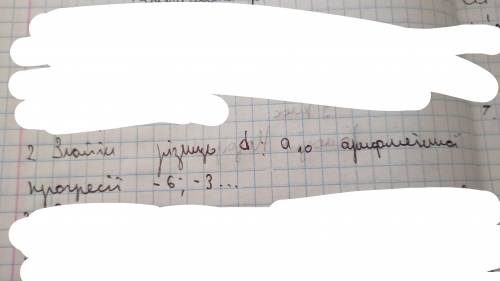 2 Знайти різницю d i a₁₀ арифметичної
прогресії -6; -3...